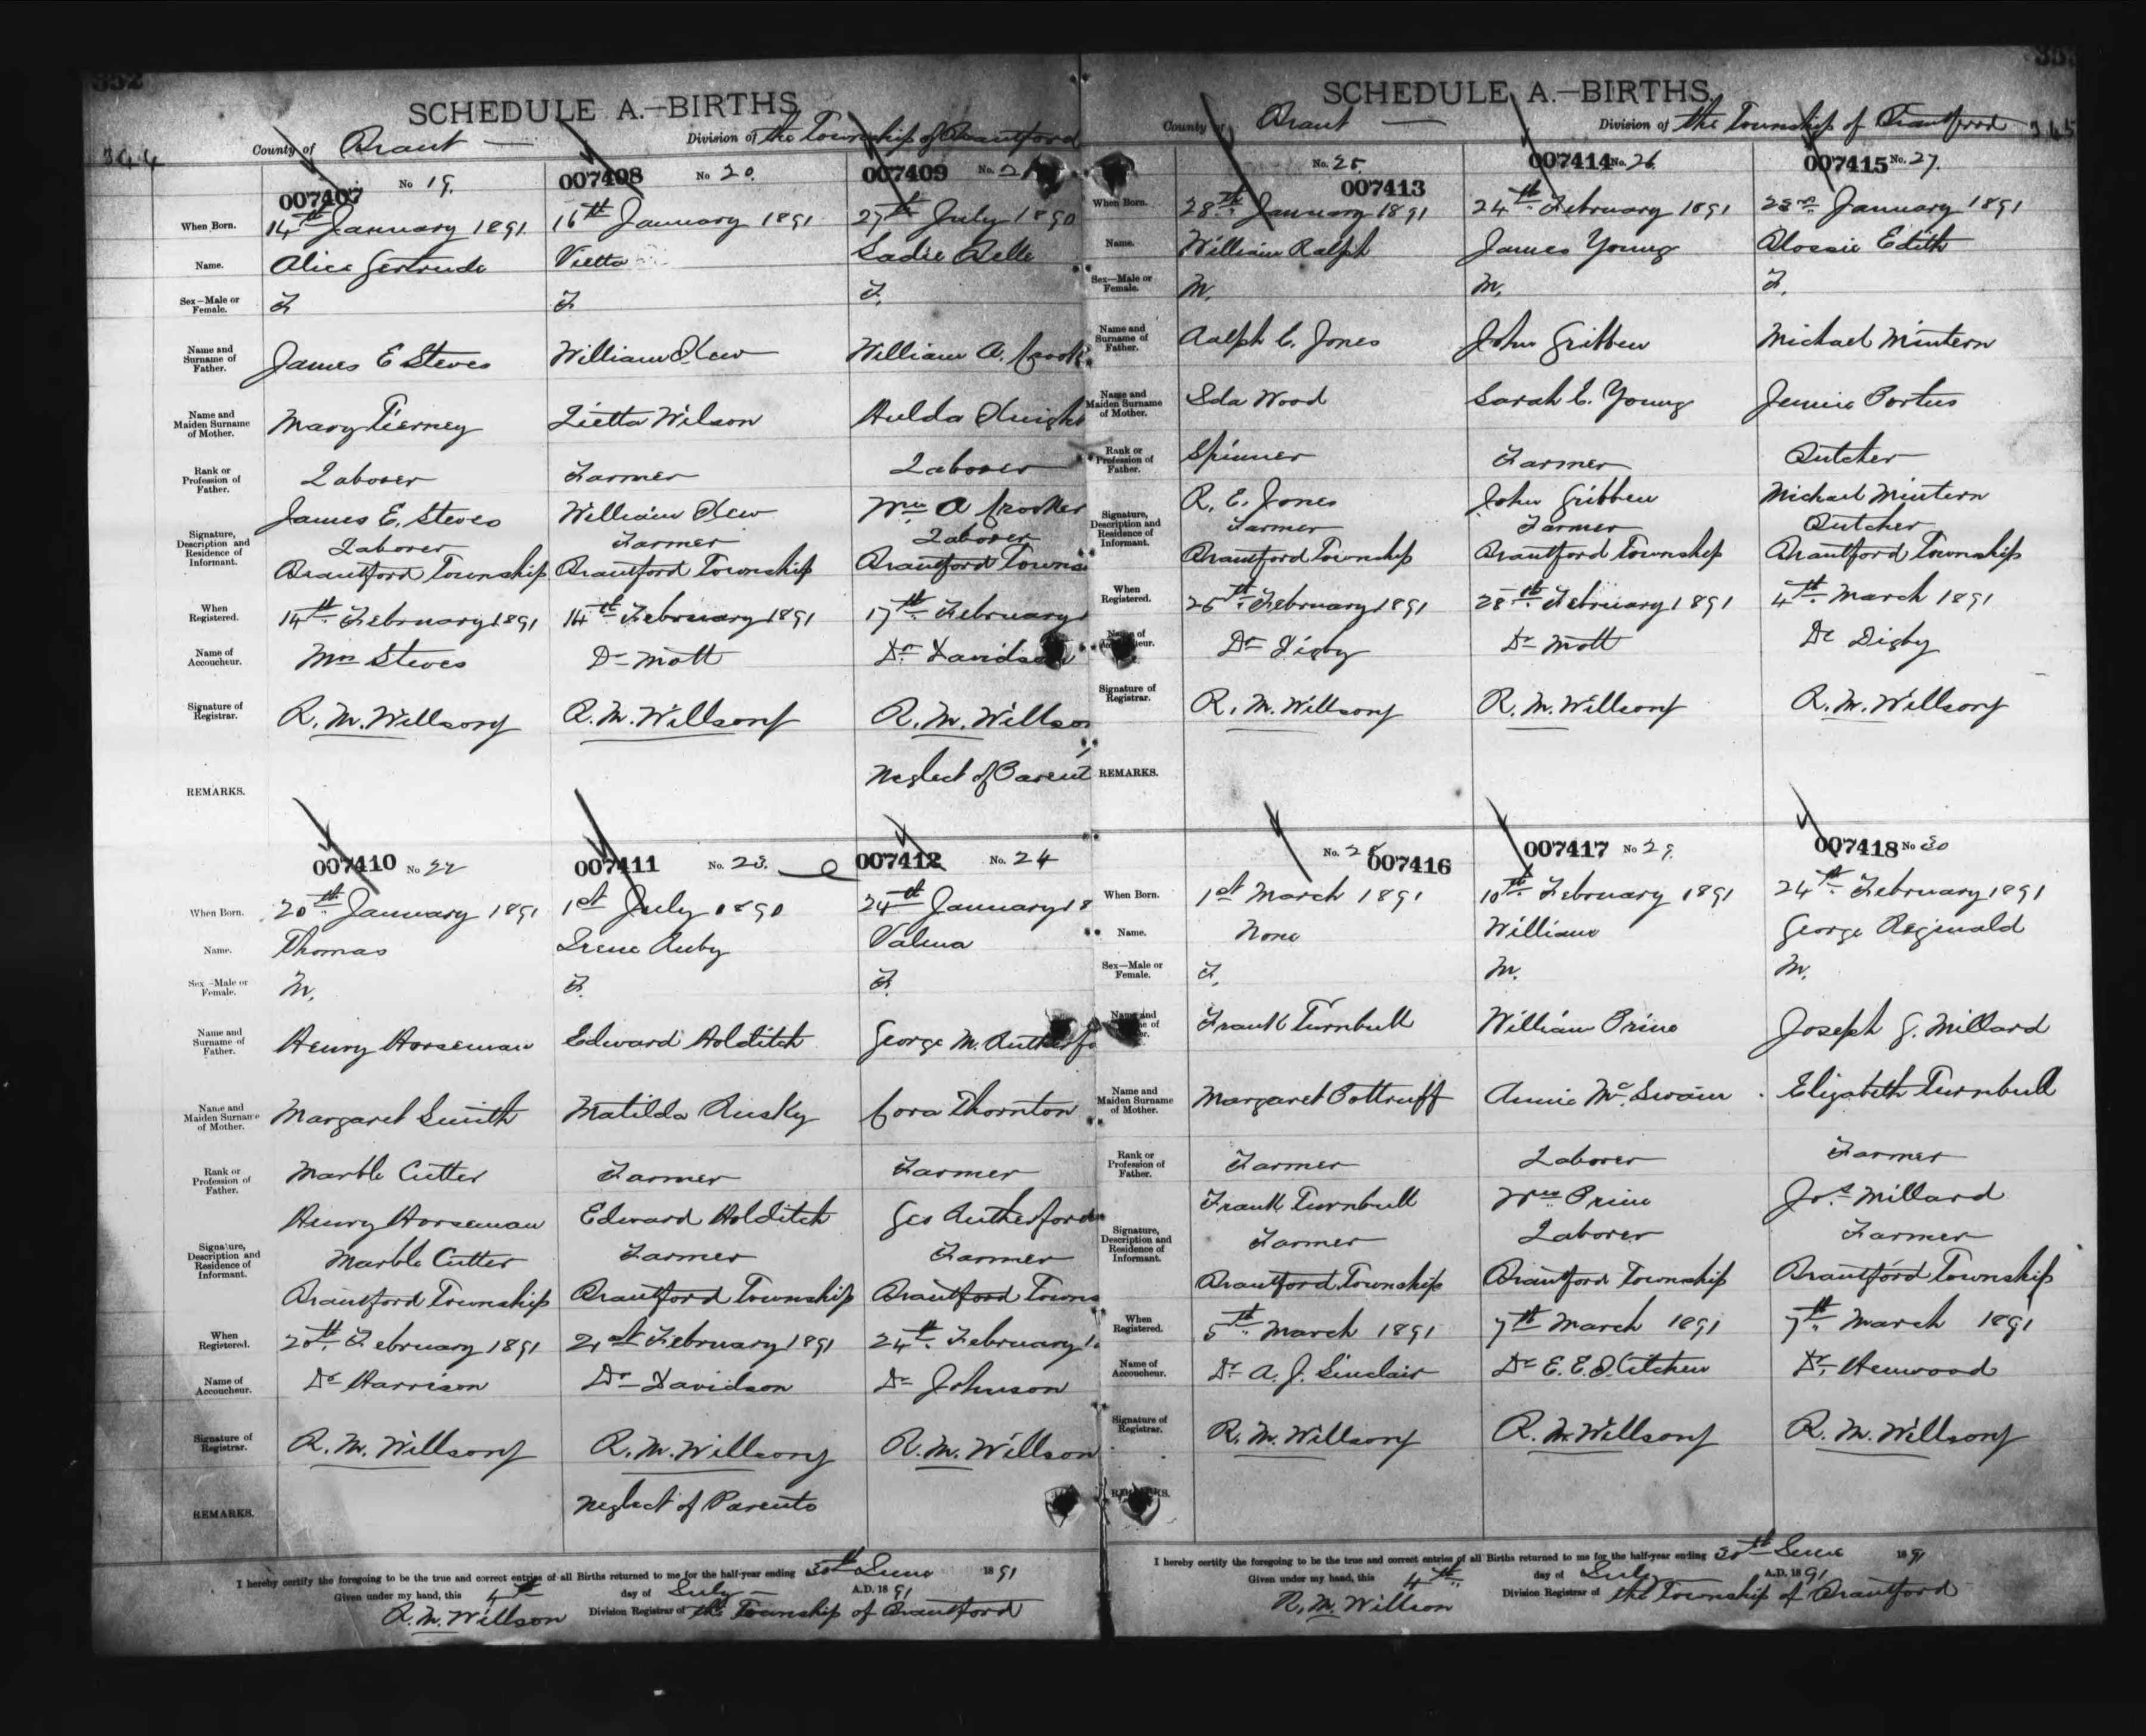 352
SCHEDULE A.—BIRTHS
344 County of Brant Division of the Township of Brantford
007407 No 19. 007408 No 20. 007409 No. 21
When Born. 14th January 1891 16th January 1891 27th July 1890
Name. Alice Gertrude Vietta Sadie Belle
Sex—Male or Female. F F. F.
Name and Surname of Father. James E Steves William Clew William A. Crook
Name and Maiden Surname of Mother. Mary Tierney Zietta Wilson Hulda
Rank or Profession of Father. Laborer Farmer Laborer
Signature, Description and Residence of Informant. James E. Steves William Clew Wm A Crooker
Laborer Farmer Laborer
Brantford Township Brantford Township Brantford Towns
When Registered. 14th February 1891 14th February 1891 17th February
Name of Accoucheur. Mrs Steves Dr Mott Dr Davidson
Signature of Registrar. R. M. Willson R. M. Willson R. M. Willso
REMARKS. Neglect of Parent
007410 No 22 007411 No. 23. 007412 No. 24
When Born. 20th January 1891 1st July 1890 24th January 18
Name. Thomas Irene Ruby Valma
Sex—Male or Female. M. F. F.
Name and Surname of Father. Henry Horseman Edward Holditch George M. Rutherfo
Name and Maiden Surname of Mother. Margaret Smith Matilda Rusky Cora Thornton
Rank or Profession of Father. Marble Cutter Farmer Farmer
Signature, Description and Residence of Informant. Henry Horseman Edward Holditch Geo Rutherford
Marble Cutter Farmer Farmer
Brantford Township Brantford Township Brantford Towns
When Registered. 20th February 1891 21st February 1891 24th February 1
Name of Accoucheur. Dr Harrison Dr Davidson Dr Johnson
Signature of Registrar. R. M. Willson R. M. Willson R. M. Willson
REMARKS. Neglect of Parents
I hereby certify the foregoing to be the true and correct entries of all Births returned to me for the half-year ending 30th June 1891
Given under my hand, this 4th day of July A.D. 1891
R. M. Willson Division Registrar of the Township of Brantford
SCHEDULE A.—BIRTHS
County of Brant Division of the Township of Brantford 345
No. 25. 007413 007414 No. 26. 007415 No. 27.
When Born. 28th January 1891 24th February 1891 January 1891
Name. William Ralph James Young Edith
Sex—Male or Female. M. M. F.
Name and Surname of Father. Ralph E. Jones John Gribben Michael Mintern
Name and Maiden Surname of Mother. Ida Wood Sarah E. Young Jennie Portus
Rank or Profession of Father. Spinner Farmer Butcher
Signature, Description and Residence of Informant. R. E. Jones John Gribben Michael Mintern
Farmer Farmer Butcher
Brantford Township Brantford Township Brantford Township
When Registered. 25th February 1891 28th February 1891 4th March 1891
Name of Accoucheur. Dr Digby Dr Mott Dr Digby
Signature of Registrar. R. M. Willson R. M. Willson R. M. Willson
REMARKS.
No. 28 007416 007417 No 29. 007418 No 30
When Born. 1st March 1891 10th February 1891 24th February 1891
Name. None William George Reginald
Sex—Male or Female. F. M. M.
Name and Surname of Father. Frank Turnbull William Prine Joseph G. Millard
Name and Maiden Surname of Mother. Margaret Bottruff Annie McSwain Elizabeth Turnbull
Rank or Profession of Father. Farmer Laborer Farmer
Signature, Description and Residence of Informant. Frank Turnbull Wm Prine Jos Millard
Farmer Laborer Farmer
Brantford Township Brantford Township Brantford Township
When Registered. 5th March 1891 7th March 1891 7th March 1891
Name of Accoucheur. Dr A. J. Sinclair Dr E. E. Kitchen Dr Henwood
Signature of Registrar. R. M. Willson R. M. Willson R. M. Willson
REMARKS.
I hereby certify the foregoing to be the true and correct entries of all Births returned to me for the half-year ending 30th June 1891
Given under my hand, this 4th day of July A.D. 1891
R. M. Willson Division Registrar of the Township of Brantford